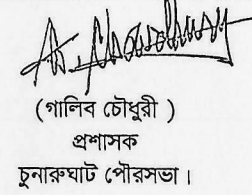 (গালিব চৌধুরী )
প্রশাসক
চুনারুঘাট পৌরসভা।